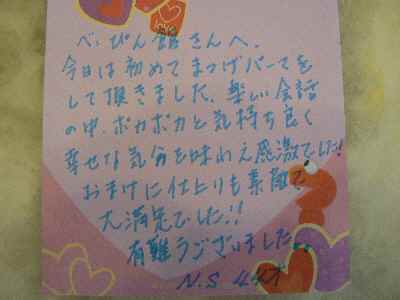 べっぴん館さんへ。
今日は初めてまつげパーマを
して頂きました。楽しい会話
の中、ポカポカと気持ち良く
幸せな気分を味わえ感激でした!
おまけに仕上りも素敵で
大満足でした!!
有難うございました。
N.S 44才